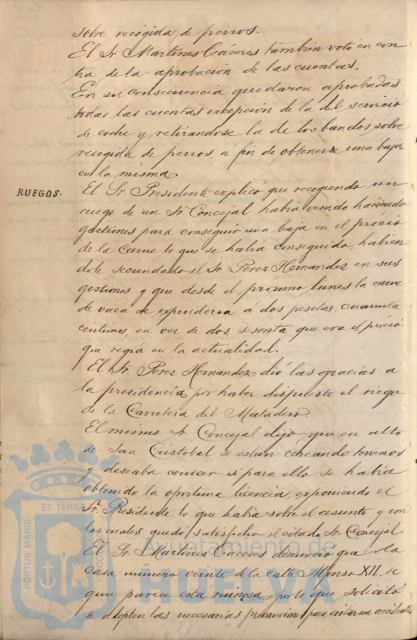 sobre recogida de perros.
El Sr. Martinez Cáceres tambien votó en con
tra de la aprobacion de las cuentas.
En su consecuencia quedaron aprobadas
todas las cuentas excepcion de la del servicio
de coche y retirándose la de los bandos sobre
recogida de perros a fin de obtenerse una baja
en la misma.
RUEGOS.
El Sr. Presidente explicó que recogiendo un
ruego de un Sr. Concejal habia venido haciendo
gestiones para conseguir una baja en el precio
de la carne lo que se habia conseguido habien
dole secundado el Sr. Perez Hernandez en sus
gestiones y que desde el proximo lunes la carne
de vaca se expenderia á dos pesetas cuarenta
centimos en vez de dos sesenta que era el precio
que regia en la actualidad.
El Sr. Perez Hernandez dió las gracias a
la presidencia por haber dispuesto el riego
de la Carretera del Matadero.
El mismo Sr. Concejal dijo que en alto
de San Cristobal se estan cercando terrenos
y deseaba conocer si para ello se habia
obtenido la oportuna licencia, exponiendo el
Sr. Presidente lo que habia sobre el asunto y con
las cuales quedó satisfecho el citado Sr. Concejal.
El Sr. Martinez Cáceres denunció que la
casa numero veinte de la calle Alfonso XII, se
que parece esta ruinosa por lo que solicitó
se adopten las necesarias precauciones para evitar un accidente
PORTUS MARIS ET TERRAE
Ayuntamiento de
HUELVA